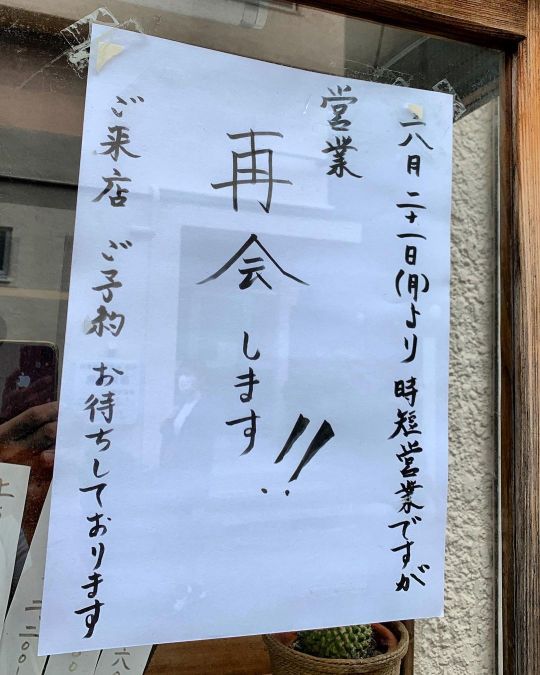 六月二十一日(月)より 時短営業ですが
営業
再会します!!
ご来店 ご予約 お待ちしております